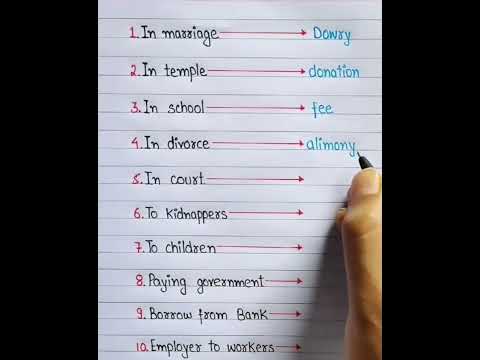 1. In marriage → Dowry
2. In temple → donation
3. In school → fee
4. In divorce → alimony
5. In court →
6. To Kidnappers →
7. To children →
8. Paying government →
9. Borrow from Bank →
10. Employer to workers →